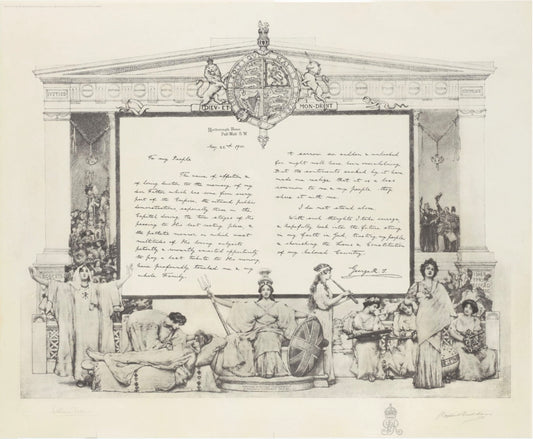 DIEV·ET
MON·DROIT
Marlborough House
Pall Mall S.W
May 23rd 1910
To my People
The voice of affection &
of loving tribute to the memory of my
dear Father which has come from every
part of the Empire, the
demonstrations, especially those in the
Capital during the two stages of the
passing to his last resting place, &
the pathetic manner in which vast
multitudes of his loving subjects
patiently & awaited opportunity
to pay a last tribute to his memory
have profoundly touched me & my
whole Family.
A sorrow so sudden & unlooked
for might well have been overwhelming.
But the sentiments evoked by it have
made me realize that it is a loss
common to me & my people - they
share it with me.
I do not stand alone.
With such thoughts I take courage
& hopefully look into the future strong
in my faith in God, trusting my people
& cherishing the laws & Constitution
of my beloved Country.
George R. I.